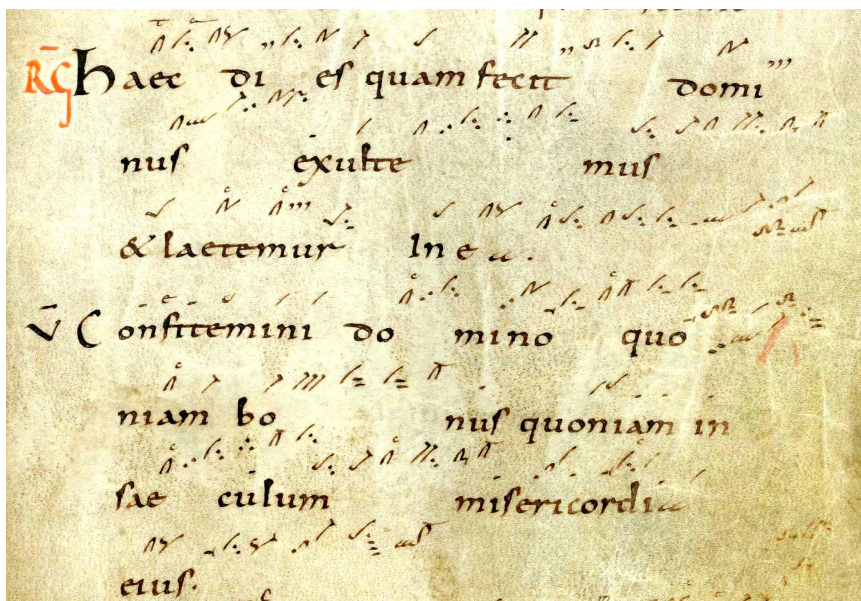 RG Haec di es quam fecit domi
nus exulte mus
& laetemur In ea.
V Confitemini do mino quo
niam bo nus quoniam in
sae culum misericordia
eius.